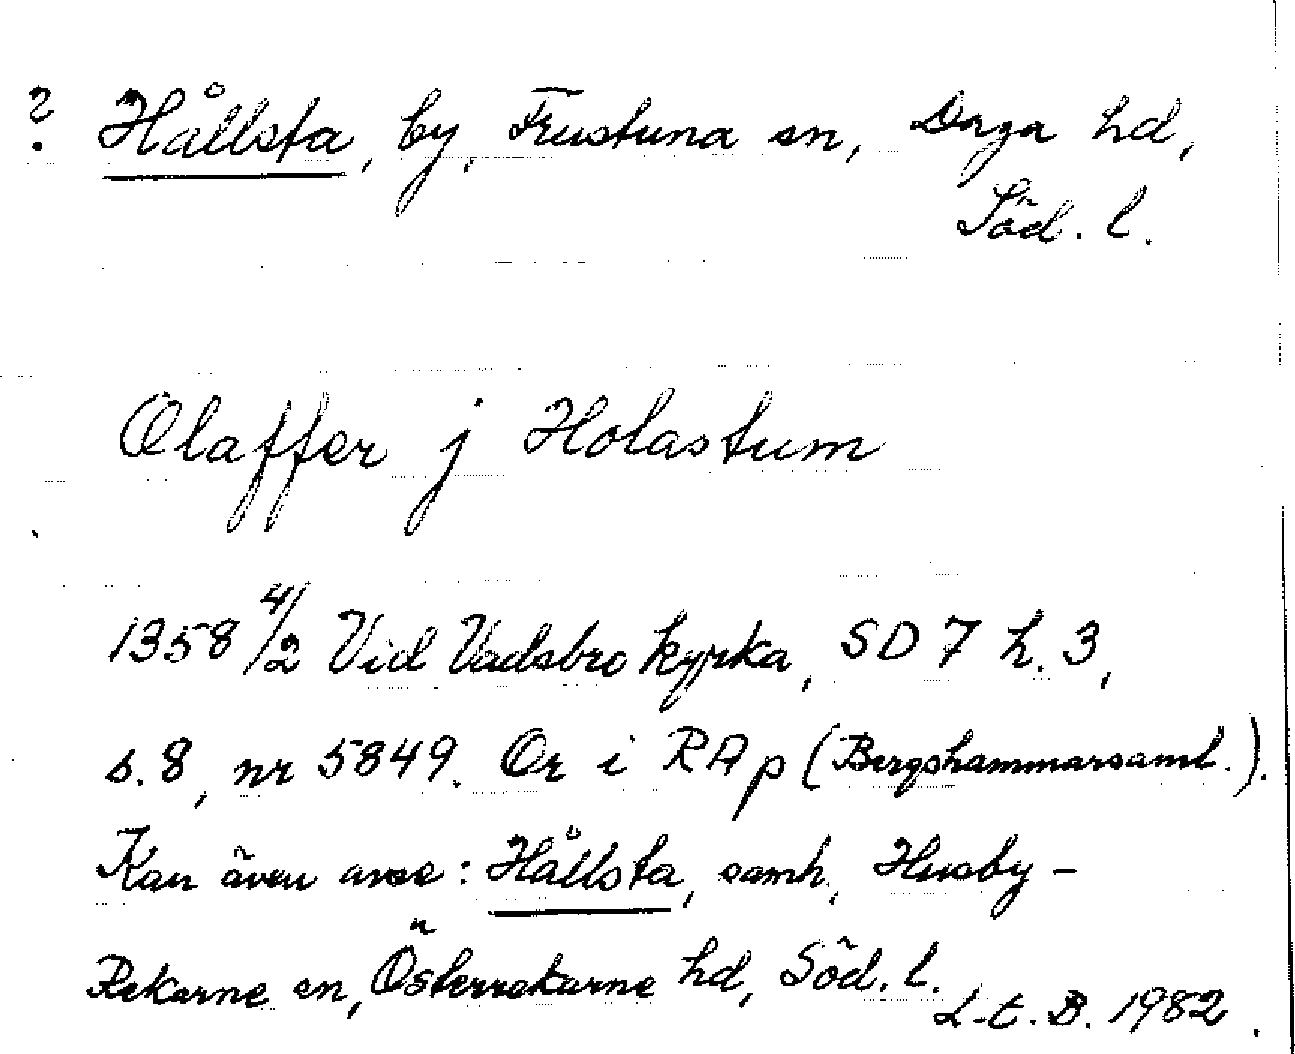 ? Hållsta, by, Frustuna sn, Daga hd,
Söd. l.
Olaffer j Holastum
1358 4/2 Vid Vadsbro kyrka, SD 7 h. 3,
s. 8, nr 5849. Or i RAp (Bergshammarsaml.).
Kan även avse: Hållsta, samh, Husby-
Rekarne sn, Österrekarne hd, Söd. l.
L-t. B. 1982.